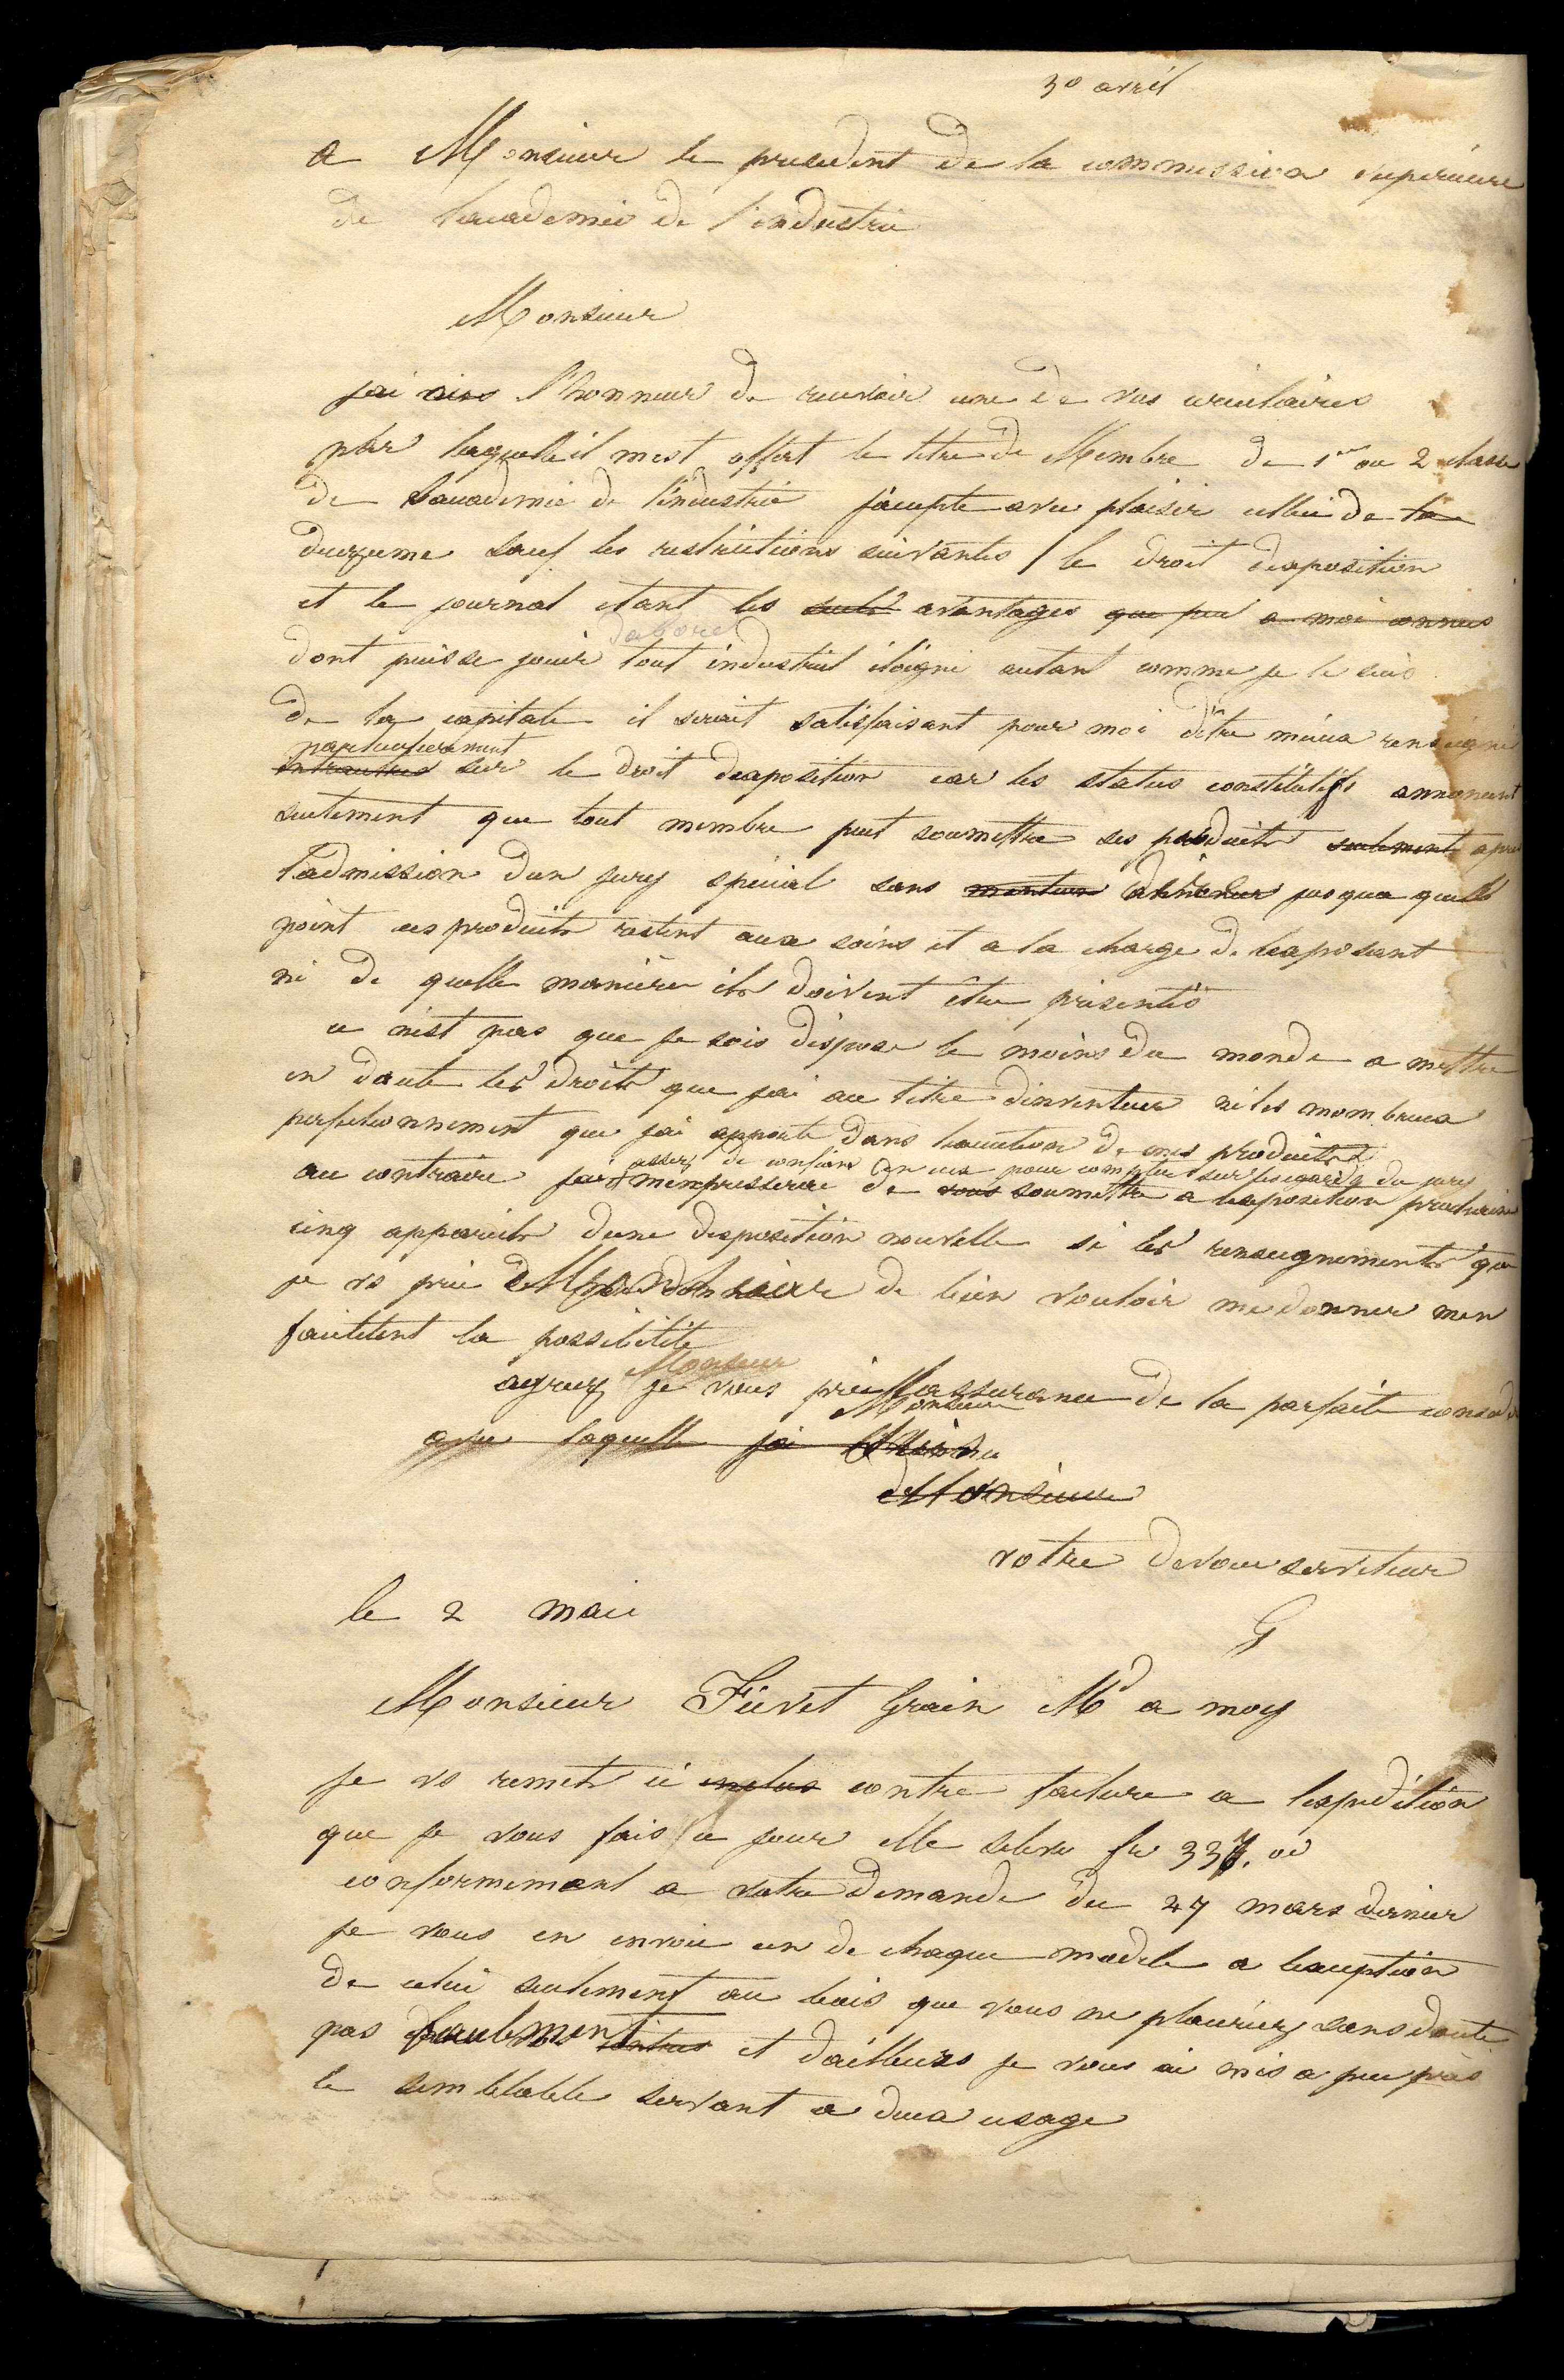 30 avril
a Monsieur le president de la commission superieure
de lacademie de l'industrie
Monsieur
jai l'honneur de recevoir une de vos circulaires
par laquelle il mest offert le titre de Membre de 1er ou 2 classe
de lacademie de l'industrie jaccepte avec plaisir celui de la
deuxieme sauf les restrictions suivantes / le droit dexposition
et le journal etant les seuls avantages que a moi connus
dabord
dont puisse jouir tout industriel éloigné autant comme je le suis
de la capitale il serait satisfaisant pour moi dêtre mieux renseigné
particulierement
entrautres sur le droit dexposition car les status constitutifs annoncent
seulement que tout membre peut soumettre ses produits seulement apres
l'admission dun jury special sans mention jusqua quelle
point ces produits restent aux soins et a la charge de lexposant
ni de quelle manière ils doivent être présentés
ce nest pas que je sois disposé le moins du monde a mettre
en doute les droits que jai au titre dinventeur ni les nombreux
perfectionnement que jai apporté dans lexecution de mes produits
assez de confiance en eux pour compter sur les egards du jury
au contraire jai mempresserai de vous soumettre a lexposition prochaine
cinq appareils dune disposition nouvelle si les renseignements que
je vs prie de bien vouloir me donner men
facilitent la possibilité
Monsieur
agreez je vous prie lassurance de la parfaite consid
Monsieur
avec laquelle jai
Monsieur
votre devoue serviteur
G
le 2 mai
Monsieur Fievet Grain Md a moy
je vs remets ci inclus contre facture a lexpédition
que je vous fais ce jour elle seleve fr 337. oc
conformemant a votre demande du 27 mars dernier
je vous en envoie un de chaque modele a lexception
de celui seulement au bois que vous ne placeriez sans doute
pas facilement et dailleurs je vous ai mis a peu près
le semblable servant a deux usage